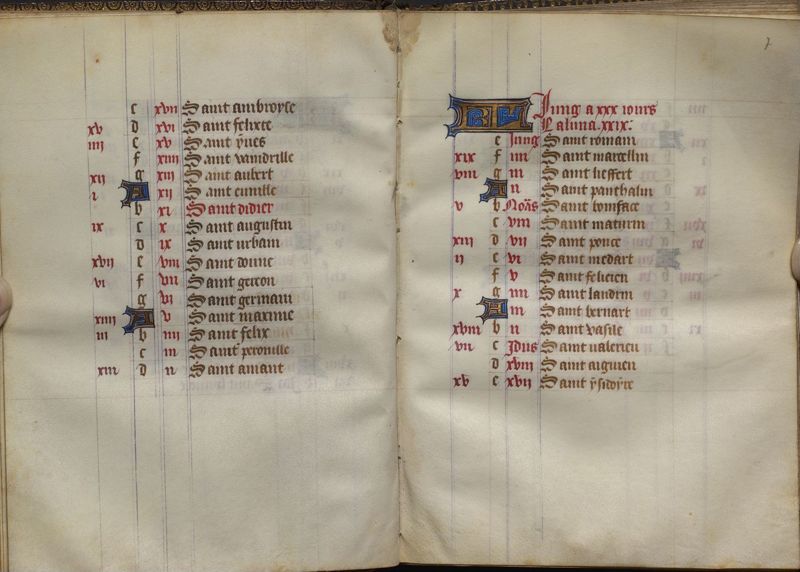 c xvii Saint ambroyse
xv d xvi Saint felixte
iiii e xv Saint yues
f xiiii Saint vandrille
xii g xiii Saint aubert
i A xii Saint emille
b xi Saint didier
ix c x Saint augustin
d ix Saint urbain
xvii e viii Saint donne
vi f vii Saint gereon
g vi Saint germain
xiiii A v Saint maxime
iii b iiii Saint felix
c iii Saint peronille
xiii d ii Saint amant
7
KL Iung a xxx iours
La luna. xxix.
e Iung Saint romain
xix f iiii Saint marcellin
viii g iii Saint lieffert
A ii Saint panthalin
v b Noñs Saint boniface
c viii Saint maturin
xiii d vii Saint ponce
ii e vi Saint medart
f v Saint felicien
x g iiii Saint landrin
A iii Saint bernart
xviii b ii Saint vasile
vii c Idus Saint valerien
d xviii Saint aignien
xv e xvii Saint ysidoyre